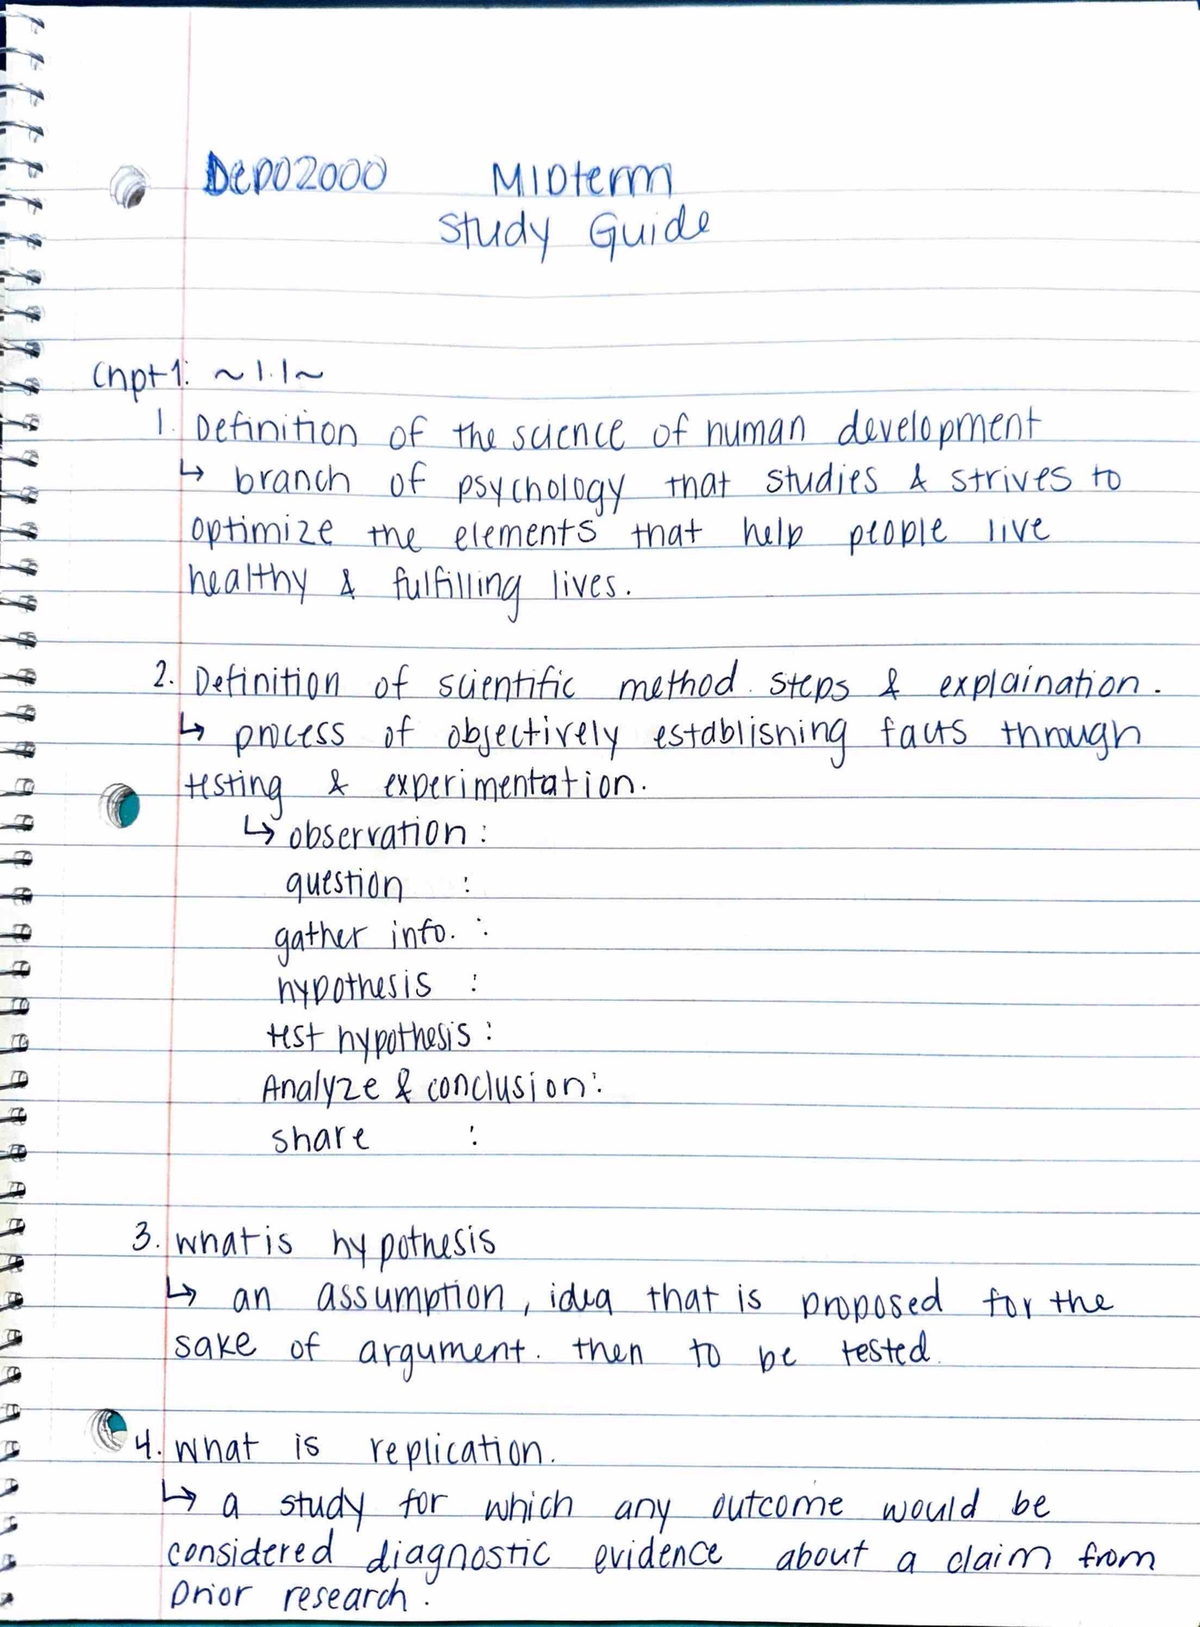 DEP02000 Midterm
Study Guide
Chpt 1: ~1.1~
1. Definition of the science of human development
↳ branch of psychology that studies & strives to
optimize the elements that help people live
healthy & fulfilling lives.
2. Definition of scientific method steps & explaination.
↳ process of objectively establishing facts through
testing & experimentation.
↳ observation:
question :
gather info. :
hypothesis :
test hypothesis:
Analyze & conclusion:
share :
3. what is hypothesis
↳ an assumption, idea that is proposed for the
sake of argument. then to be tested.
4. what is replication.
↳ a study for which any outcome would be
considered diagnostic evidence about a claim from
prior research.